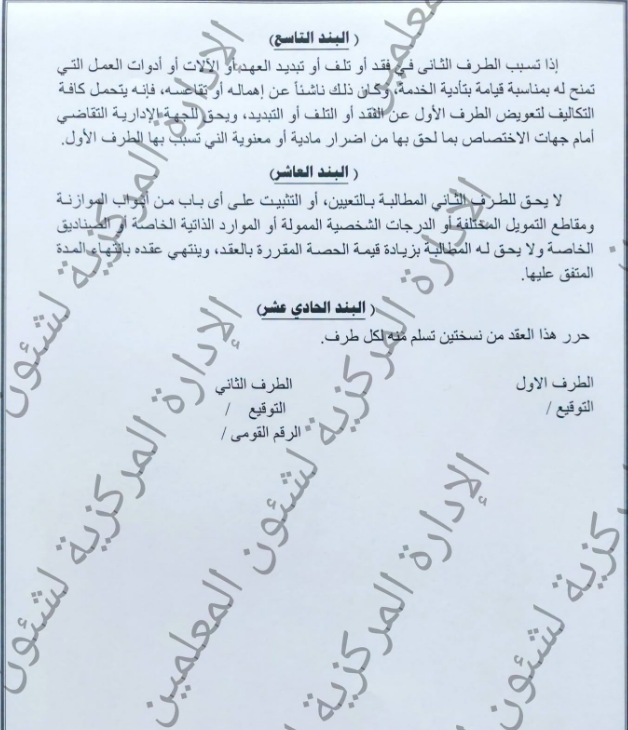 ( البند التاسع )
إذا تسبب الطرف الثانى في فقد أو تلف أو تبديد العهد أو الآلات أو أدوات العمل التي
تمنح له بمناسبة قيامة بتأدية الخدمة، وكان ذلك ناشئاً عن إهماله أو تقاعسه، فإنه يتحمل كافة
التكاليف لتعويض الطرف الأول عن الفقد أو التلف أو التبديد، ويحق للجهة الإدارية التقاضي
أمام جهات الاختصاص بما لحق بها من اضرار مادية أو معنوية التي تسبب بها الطرف الأول.
( البند العاشر )
لا يحق للطرف الثاني المطالبة بالتعيين، أو التثبيت على أى باب من أبواب الموازنة
ومقاطع التمويل المختلفة أو الدرجات الشخصية الممولة أو الموارد الذاتية الخاصة أو الصناديق
الخاصة ولا يحق له المطالبة بزيادة قيمة الحصة المقررة بالعقد، وينتهي عقده بانتهاء المدة
المتفق عليها.
( البند الحادي عشر )
حرر هذا العقد من نسختين تسلم منه لكل طرف.
الطرف الاول
الطرف الثاني
التوقيع /
التوقيع /
الرقم القومى /
المعلمين
الإدارة المركزية لشئون
الإدارة المركزية لشئون المعلمين
الإدارة المركزية لشئون
الإدارة المركزية
كزية لشئون